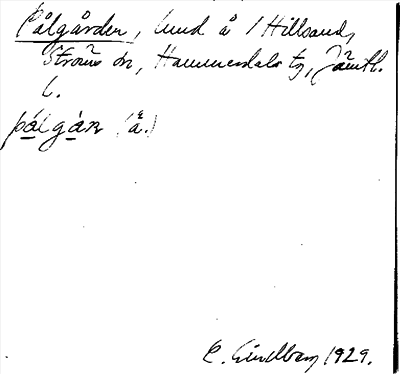 Pålgården, hmd å 1 Hillsand,
Ströms sn, Hammerdals tg, Jämtl.
L.
pálgàn (å.)
E. Lindberg 1929.